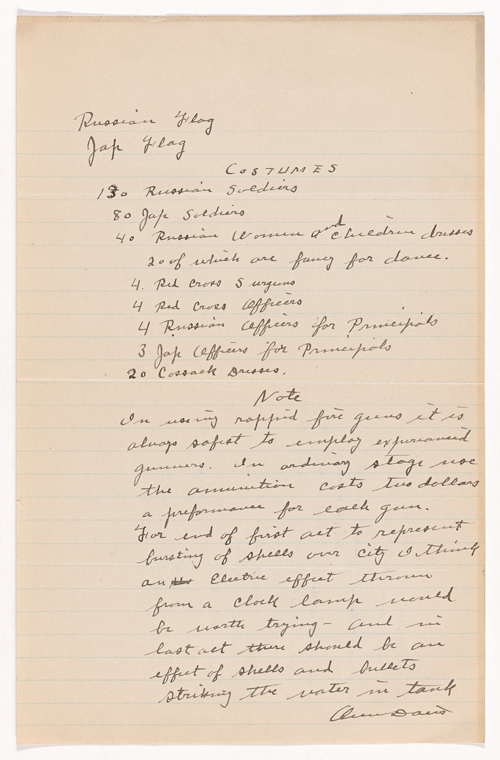 Russian Flag
Jap Flag
COSTUMES
130 Russian Soldiers
80 Jap Soldiers
40 Russian Women and Children dresses
20 of which are fancy for dance.
4. Red Cross Surguns
4 Red Cross Officers
4 Russian Officers for Principals
3 Jap Officers for Principals
20 Cossack Dresses.
Note
In using rappid fire guns it is
always safest to employ experianced
gunners. In ordinary stage use
the amunition costs two dollars
a preformance for each gun.
For end of first act to represent
bursting of shells over city I think
an Electric effect thrown
from a Clock lamp would
be worth trying - and in
last act there should be an
effect of shells and bullets
striking the water in tank
Davis